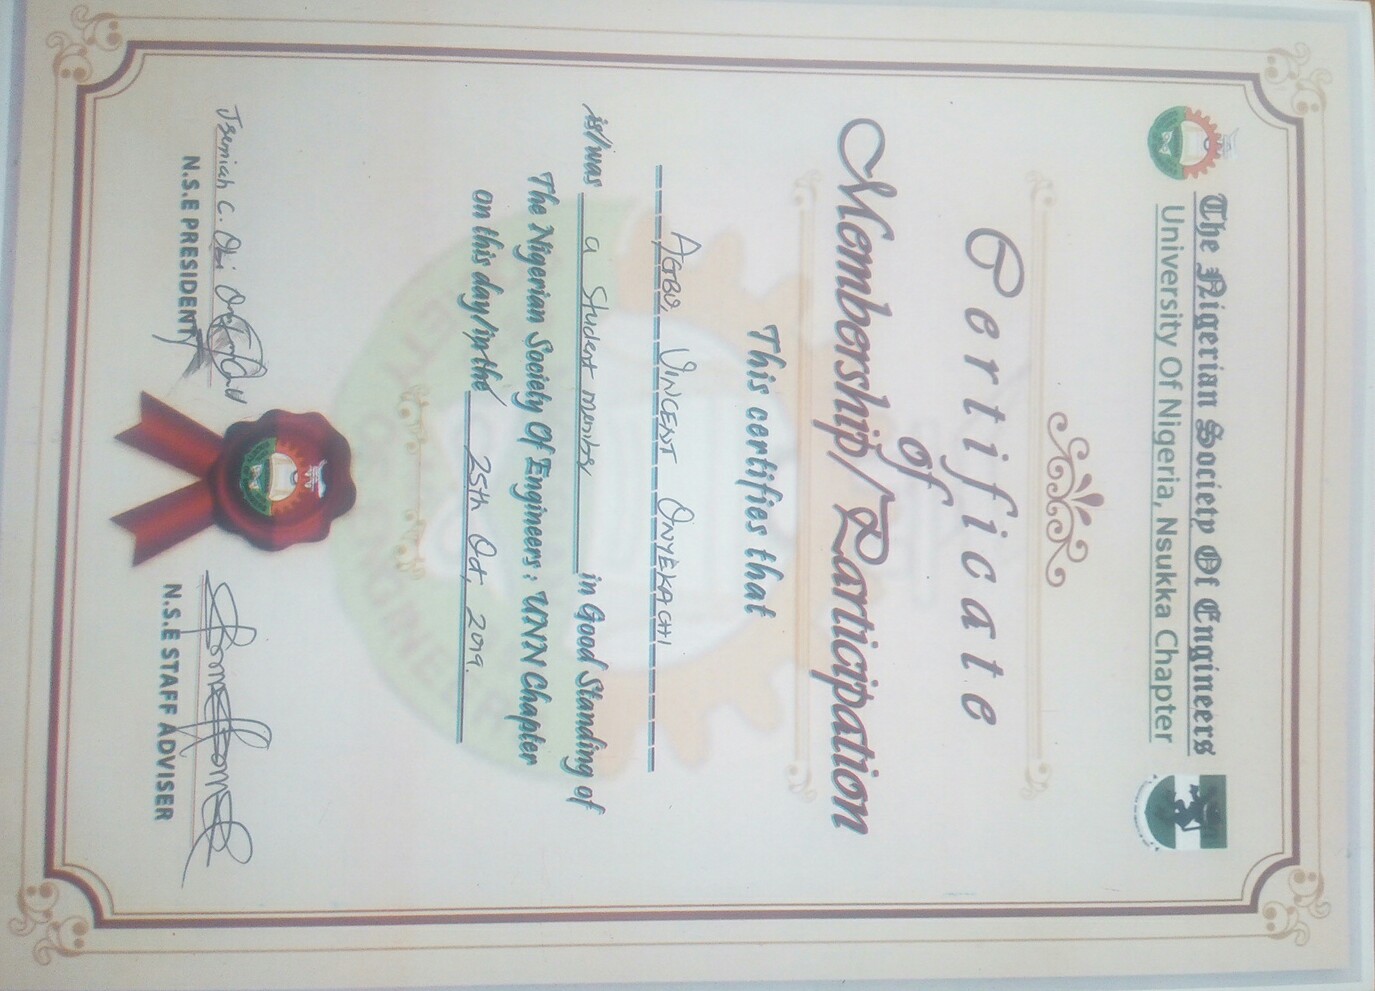 The Nigerian Society Of Engineers
University Of Nigeria, Nsukka Chapter
Certificate
of
Membership/Participation
This certifies that
AGBO, VINCENT ONYEKACHI
is/was a Student member in Good Standing of
The Nigerian Society Of Engineers : UNN Chapter
on this day/in the 25th Oct, 2019.
SOCIETY OF ENGINEERS
Jeremiah C. Obi
N.S.E PRESIDENT
N.S.E STAFF ADVISER